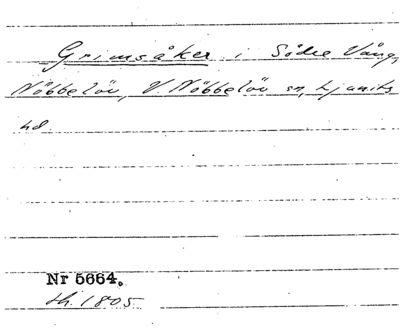 Grimsåker i Södre Vång,
Nöbbelöv, V. Nöbbelöv sn, Ljunits
hd.
Nr 5664.
Sk. 1805